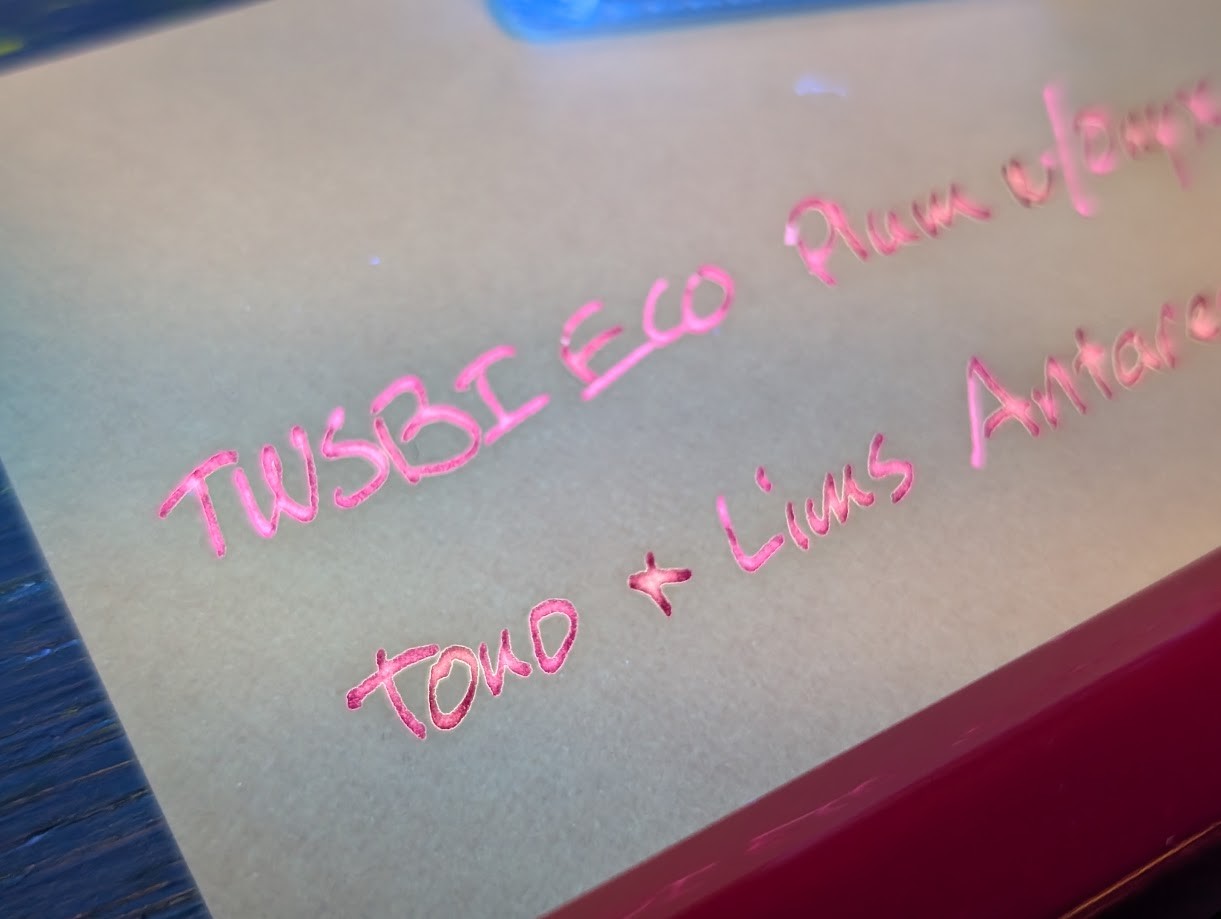 TWSBI ECO Plum w/Onyx
TONO + Lims Antare